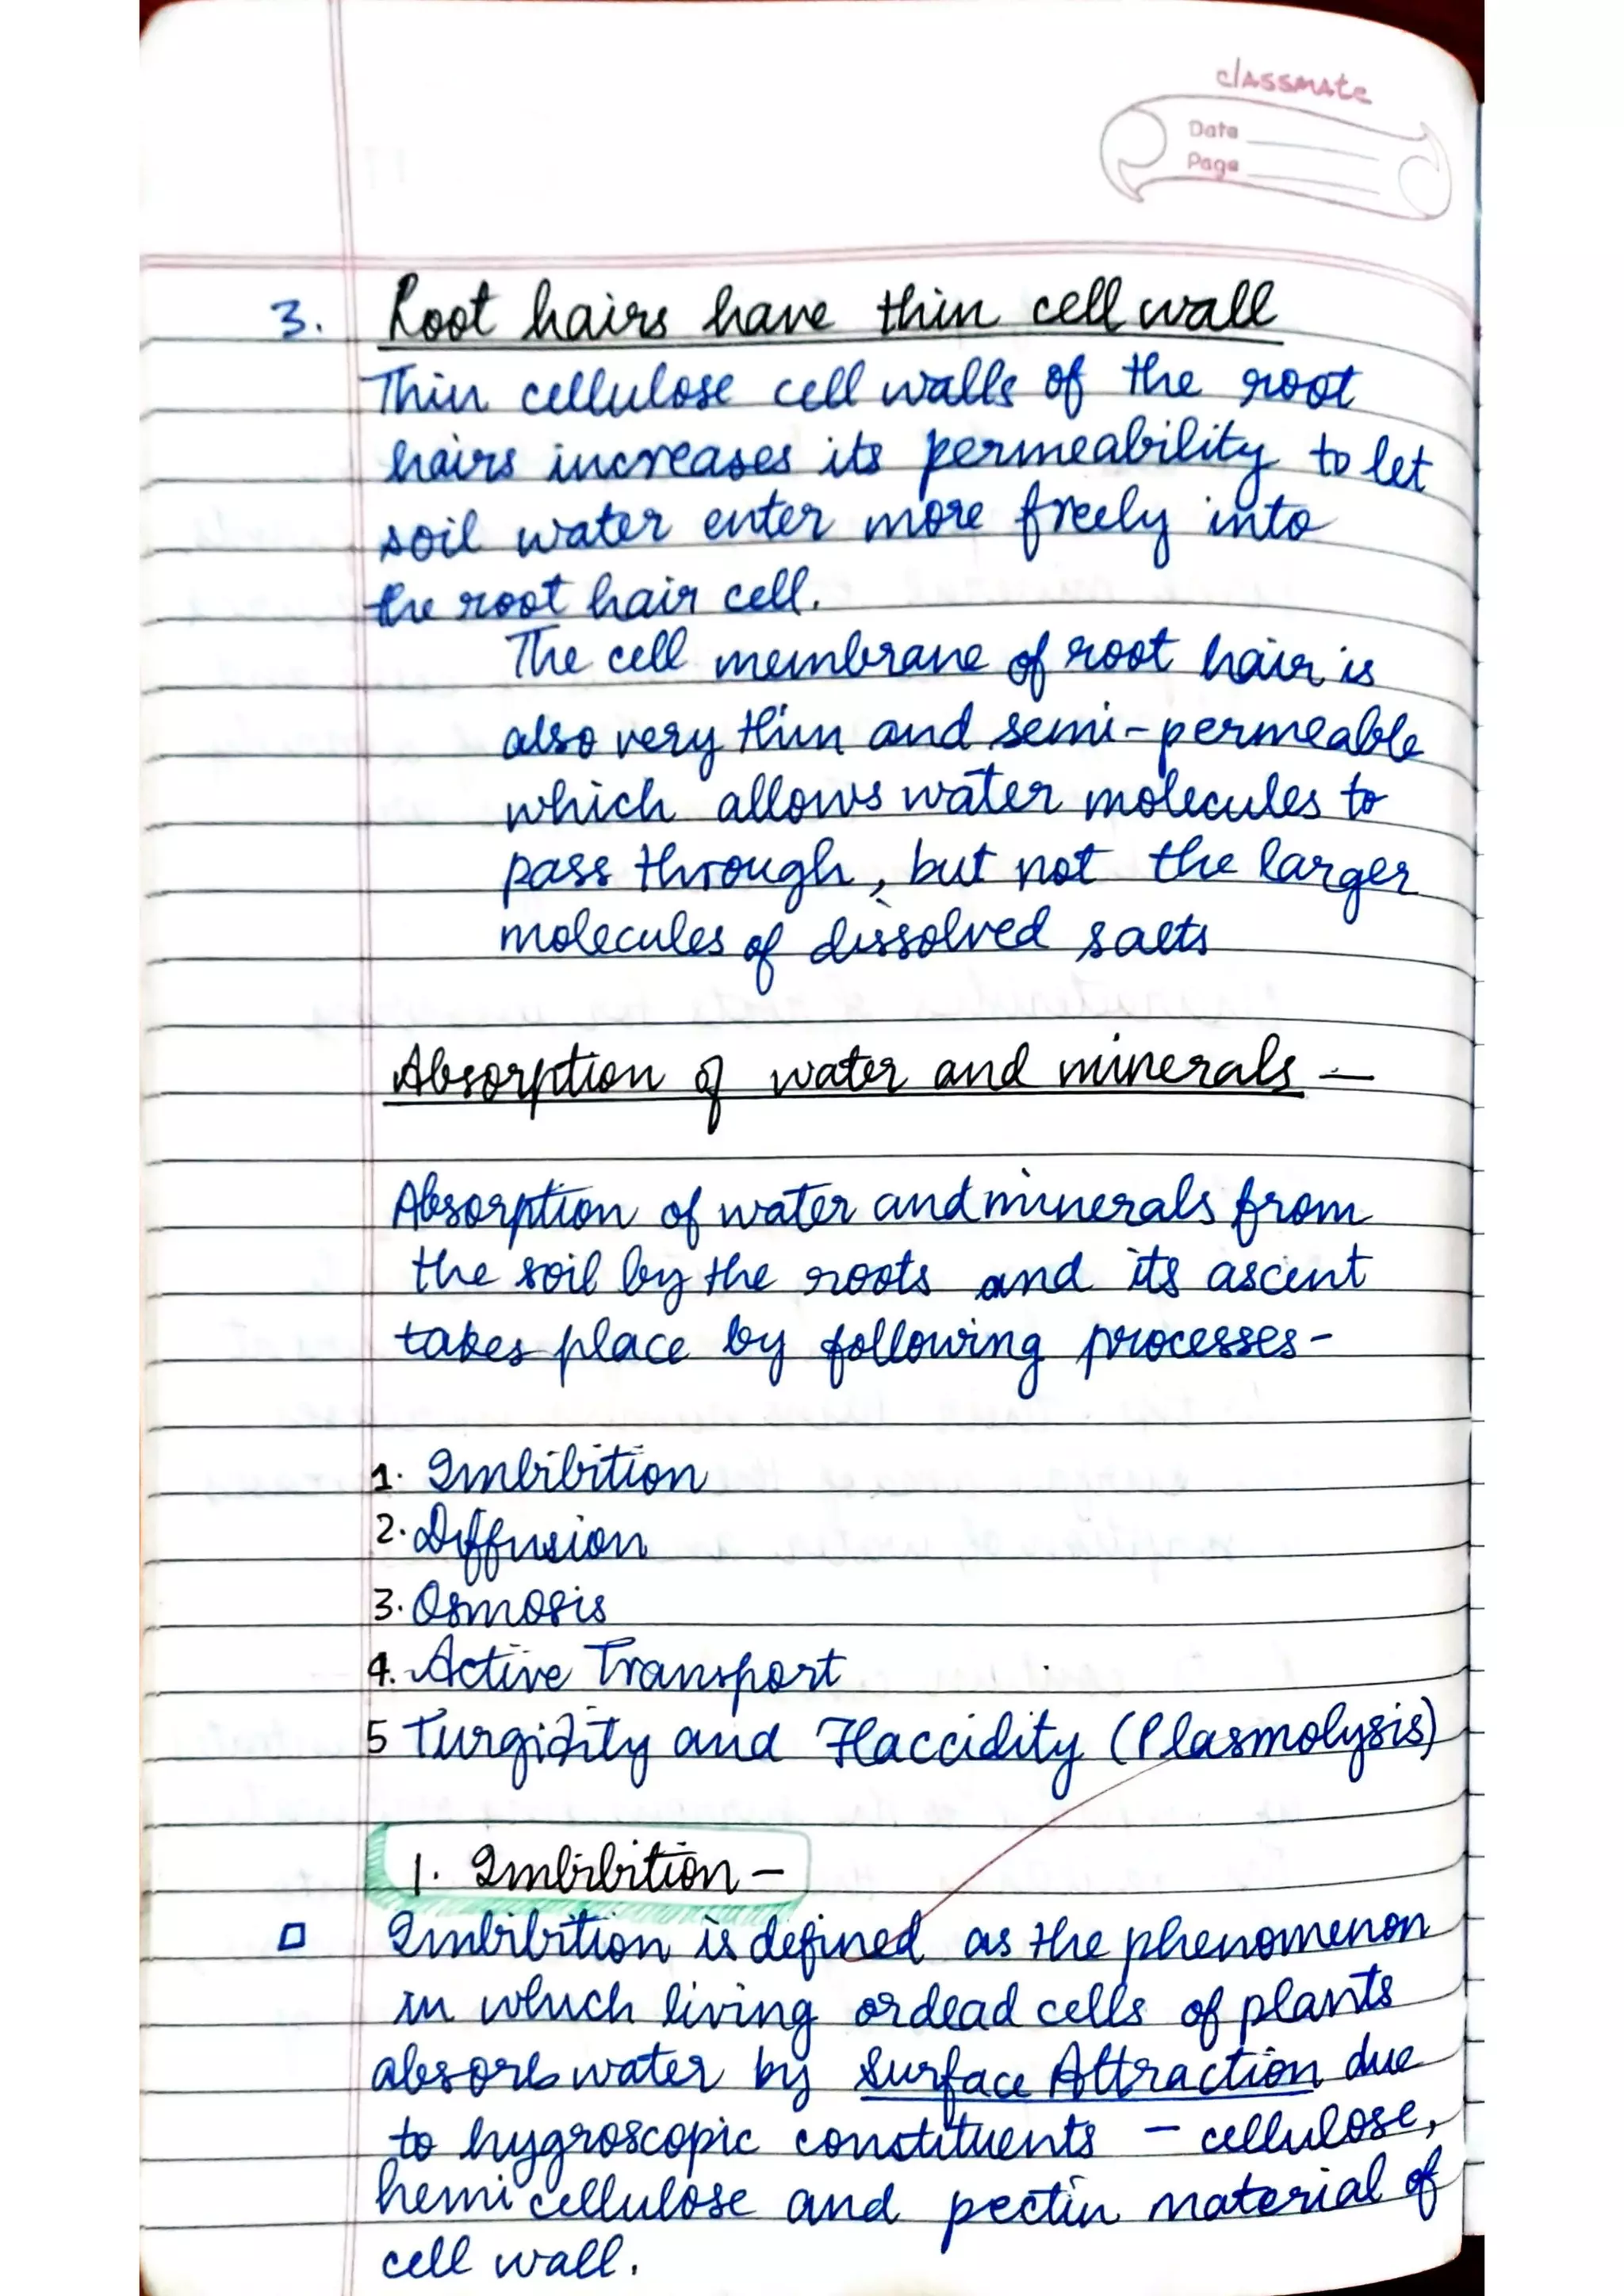 classmate
Date
Page
3. Root hairs have thin cell wall
Thin cellulose cell walls of the root
hairs increases its permeability to let
soil water enter more freely into
the root hair cell.
The cell membrane of root hair is
also very thin and semi-permeable
which allows water molecules to
pass through, but not the larger
molecules of dissolved salts
Absorption of water and minerals —
Absorption of water and minerals from
the soil by the roots and its ascent
takes place by following processes-
1. Imbibition
2. Diffusion
3. Osmosis
4. Active Transport
5 Turgidity and Flaccidity (Plasmolysis)
1. Imbibition -
Imbibition is defined as the phenomenon
in which living or dead cells of plants
absorb water by Surface Attraction due
to hygroscopic constituents - cellulose,
hemi cellulose and pectin material of
cell wall.